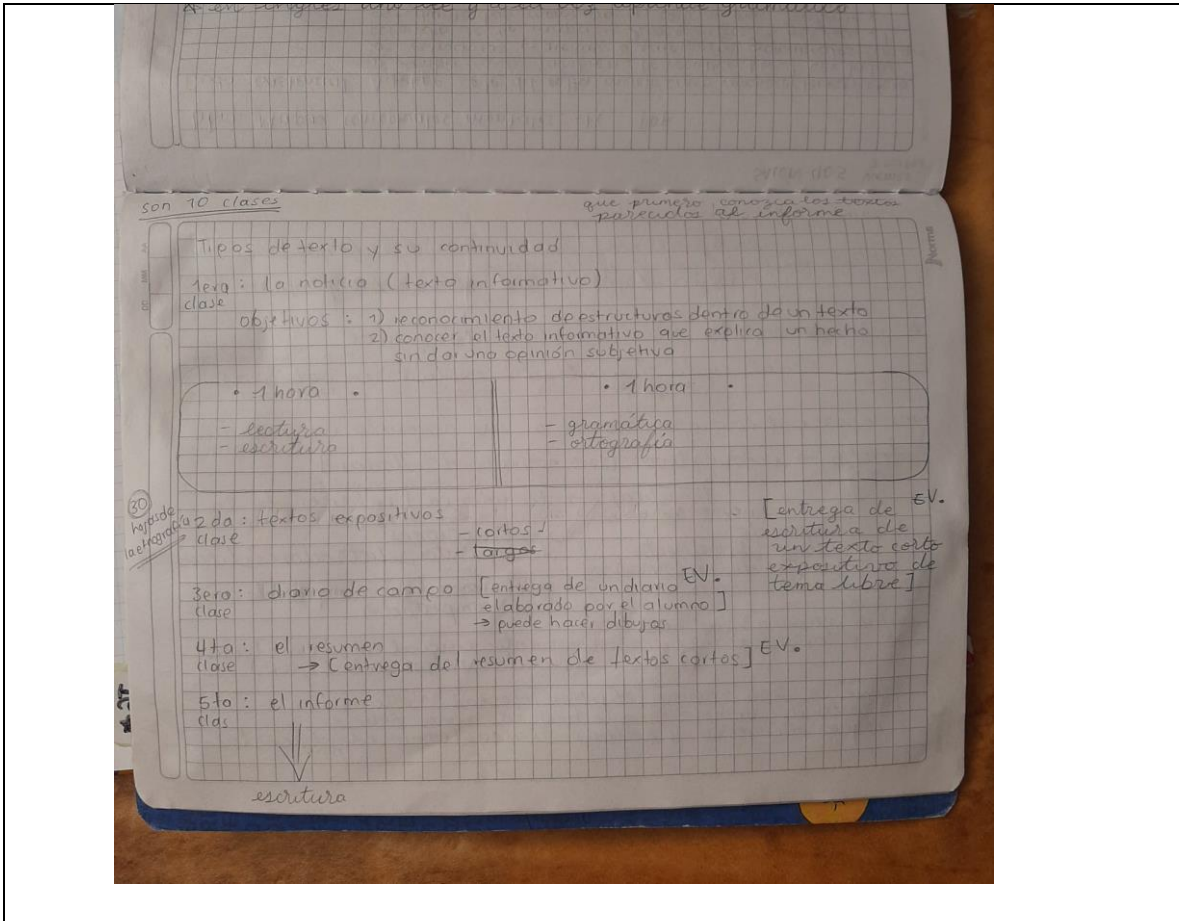 son 10 clases
que primero conozca los textos
parecidos al informe
Tipos de texto y su continuidad
1era: la noticia (texto informativo)
clase
objetivos: 1) reconocimiento de estructuras dentro de un texto
2) conocer el texto informativo que explica un hecho
sin dar una opinión subjetiva
• 1 hora •
- lectura
- escritura
• 1 hora •
- gramática
- ortografía
30
hojas de
2da: textos expositivos
clase
- cortos -
- largos
[entrega de EV.
escritura de
un texto corto
expositivo de
tema libre]
3ero: diario de campo [entrega de un diario EV.
clase
elaborado por el alumno]
→ puede hacer dibujos
4ta: el resumen
clase → [entrega del resumen de textos cortos] EV.
5to: el informe
clas
escritura